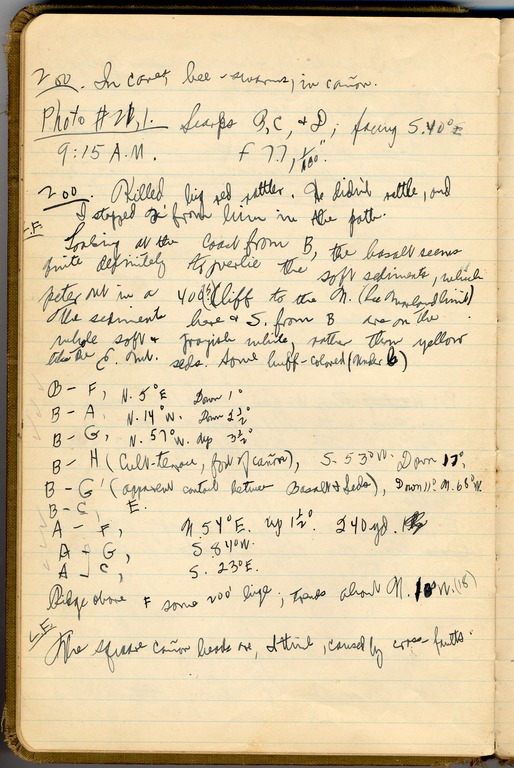 Zoo. In cave, bee-swarms, in cañon.
Photo #21,1. Scarps B, C, & D; facing S.40°E
9:15 A.M. f 7.7, 1/100".
Zoo. Killed big red rattler. He didn't rattle, and
I stepped from him in the path.
L.F.
Looking at the coast from B, the basalt seems
quite definitely to overlie the soft sediments, which
peter out in a 400' cliff to the N. (
The sediments here & S. from B are on the
whole soft & grayish white, rather than yellow
like the E. seds. Some buff-colored (under b)
B - F, N. 5°E Down 1°
B - A, N. 14°W. Down 2½°
B - G, N. 57°W. dip 3½°
B - H (Cult-terrace, foot of cañon), S. 53°W. Down 17°,
B - G' (apparent contact between Basalt & Seds), Down 11° N. 68°W.
B - C, E.
A - F, N. 54°E. up 1½°. 240 yd.
A - G, S. 84°W.
A - C, S. 23°E.
Ridge above F some 200' high; trends about N. 10°W. (18)
L.F.
The square cañon heads are, I think, caused by cross-faults.